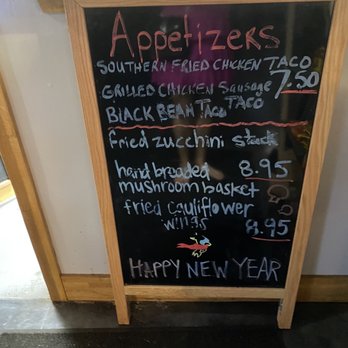 Appetizers
SOUTHERN FRIED CHICKEN TACO
GRILLED CHICKEN Sausage TACO 7.50
BLACK BEAN Taco
fried zucchini
hand breaded 8.95
mushroom basket
fried cauliflower
wings 8.95
HAPPY NEW YEAR